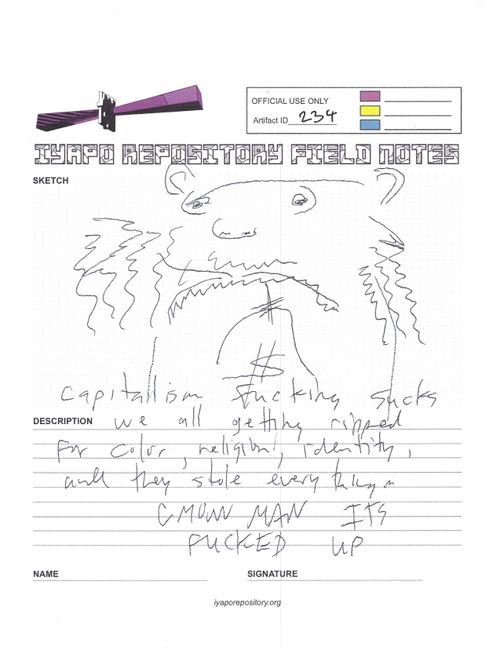 OFFICIAL USE ONLY
Artifact ID 234
IYAPO REPOSITORY FIELD NOTES
SKETCH
$
Capitallism fucking sucks
DESCRIPTION
we all getting ripped
for color, religion, identity,
and they stole everything
CMOW MAN ITS
FUCKED UP
NAME
SIGNATURE
iyaporepository.org